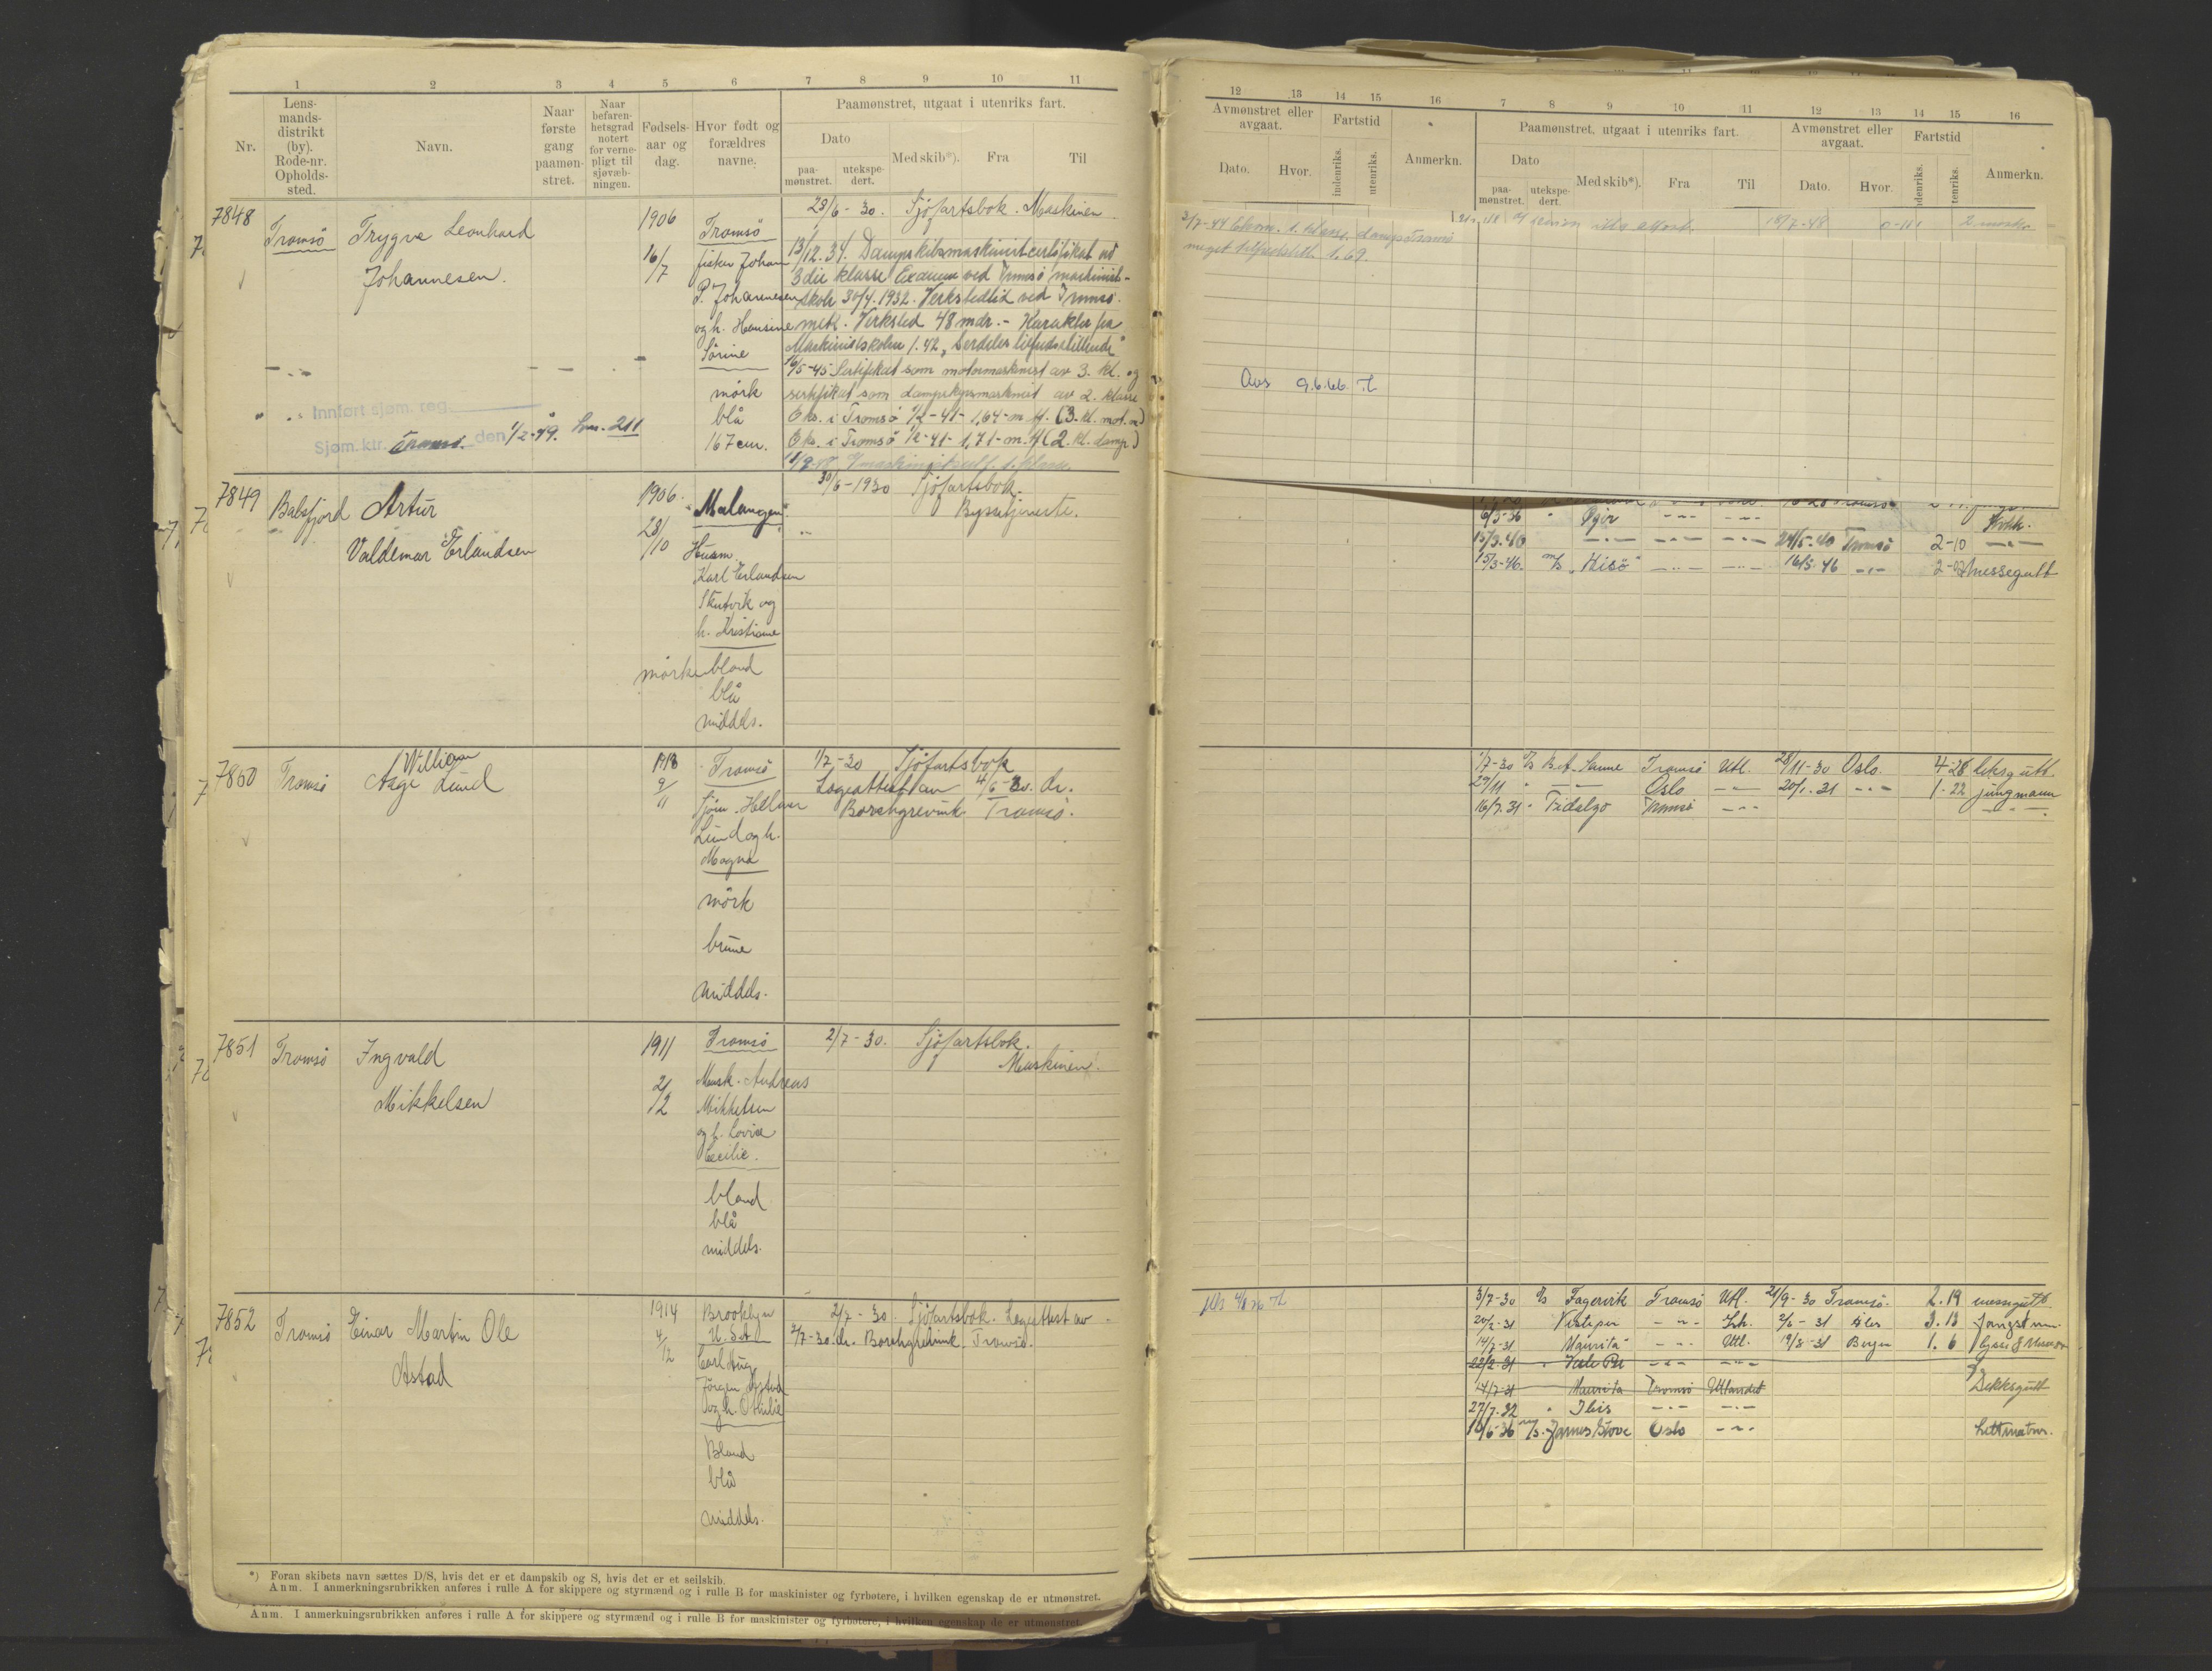 1 2 3 4 5 6 7 8 9 10 11
Nr.
Lens-
mands-
distrikt
(by).
Rode-nr.
Opholds-
sted.
Navn.
Naar
første
gang
paamøn-
stret.
Naar
befaren-
hetsgrad
notert
for verne-
pligt til
sjøvæb-
ningen.
Fødsels-
aar og
dag.
Hvor født og
forældres
navne.
Paamønstret, utgaat i utenriks fart.
Dato
paa-
mønstret.
utekspe-
dert.
Med skib*).
Fra
Til
7848
Tromsö
Trygve Leonhard
Johannesen.
1906
16/7
Tromsö
fisker Johan
P. Johannesen
og h. Hansine
Sörine
mörk
blå
167 cm.
Innført sjøm. reg.
Sjøm.ktr. Tromsö den 1/2-49. Lnr. 211
28/6 - 30. Sjöfartsbok. Maskinen
13/12.34. Dampskibsmaskinistcertifikat av
3die klasse Examen ved Tromsö maskinist-
skole 30/4.1932. Verkstedtid ved Tromsö
mek. Verksted 48 mdr. - Karakter fra
Maskinistskolen 1.42 „Serdeles tilfredsstillende"
16/5-45 Sertifikat som motormaskinist av 3. kl. og
sertifikat som dampskipsmaskinist av 2. klasse
Eks. i Tromsö 1/2-41- 1,64-m.tf. (3. kl. mot.m)
Eks. i Tromsö 1/2-41- 1,71-m.tf (2. kl. damp)
7849
Balsfjord
Artur
Valdemar Erlandsen
1906.
28/10
"Malangen"
Husm.
Karl Erlandsen
Skutvik og
h. Kristiane
mörkenbland
blå
middels.
30/6-1930 Sjöfartsbok.
Byssetjeneste.
7850
Tromsö
William
Aage Lund
1913
9/11
Tromsö
Sjöm. Helmer
Lund og h.
Magna
mörk
brune
middels.
1/7-30 Sjöfartsbok
Legeattest av 4/6-30. dr.
Borchgrevink Tromsö.
7851
Tromsö
Ingvald
Mikkelsen
1911
2/2
Tromsö
Mask. Andreas
Mikkelsen
og h. Lovise
Cecilie.
blond
blå
middels.
2/7-30. Sjöfartsbok.
Maskinen.
7852
Tromsö
Einar Martin Ole
Astad
1914
4/12
Brooklyn
U.S.A.
Carl Aug.
Jörgen Astad
og h. Othilie
Blond
blå
middels.
2/7-30. Sjöfartsbok. Legeattest av
2/7-30. dr. Borchgrevink. Tromsö.
*) Foran skibets navn sættes D/S, hvis det er et dampskib og S, hvis det er et seilskib.
Anm. I anmerkningsrubrikken anføres i rulle A for skippere og styrmænd og i rulle B for maskinister og fyrbøtere, i hvilken egenskap de er utmønstret.
Anm. I anmerkningsrubrikken anføres i rulle A for skippere og styrmænd og i rulle B for maskinister og fyrbøtere, i hvilken egenskap de er utmønstret.
12 13 14 15 16 7 8 9 10 11 12 13 14 15 16
Avmønstret eller
avgaat.
Dato.
Hvor.
Fartstid
indenriks.
utenriks.
Anmerkn.
Paamønstret, utgaat i utenriks fart.
Dato
paa-
mønstret.
utekspe-
dert.
Med skib*).
Fra
Til
Avmønstret eller
avgaat.
Dato.
Hvor.
Fartstid
indenriks.
utenriks.
Anmerkn.
18/7-48
Avs 9.6.66.
6/3-36 " Ægir
15/3.40 24/5.40 Tromsö 2-10
15/3-46. m/s „Kisö" 16/5.46 messegutt
1/7-30 Tromsö Utl. 28/11-30 Oslo. 4-28 deksgutt.
29/11 Oslo 20/1.31 1-22 jungmann
16/7.31 " Fidelgo Tromsö
3/7-30 D/s Fagervik Tromsö Utl. 21/9-30 Tromsö. 2.19 messegutt
20/2-31 Vesleper 2/6-31 Ales 3.13 fangstm.
14/7-31 „Maurita" Utl. 19/8-31 Bergen 1.6
22/2-31 " Vesle Per
14/7-31 Maurita Tromsö Utlandet Dekksgutt
27/7.32 " Ibis
10/6-36 m/s. James Stove Oslo Lettmatros.